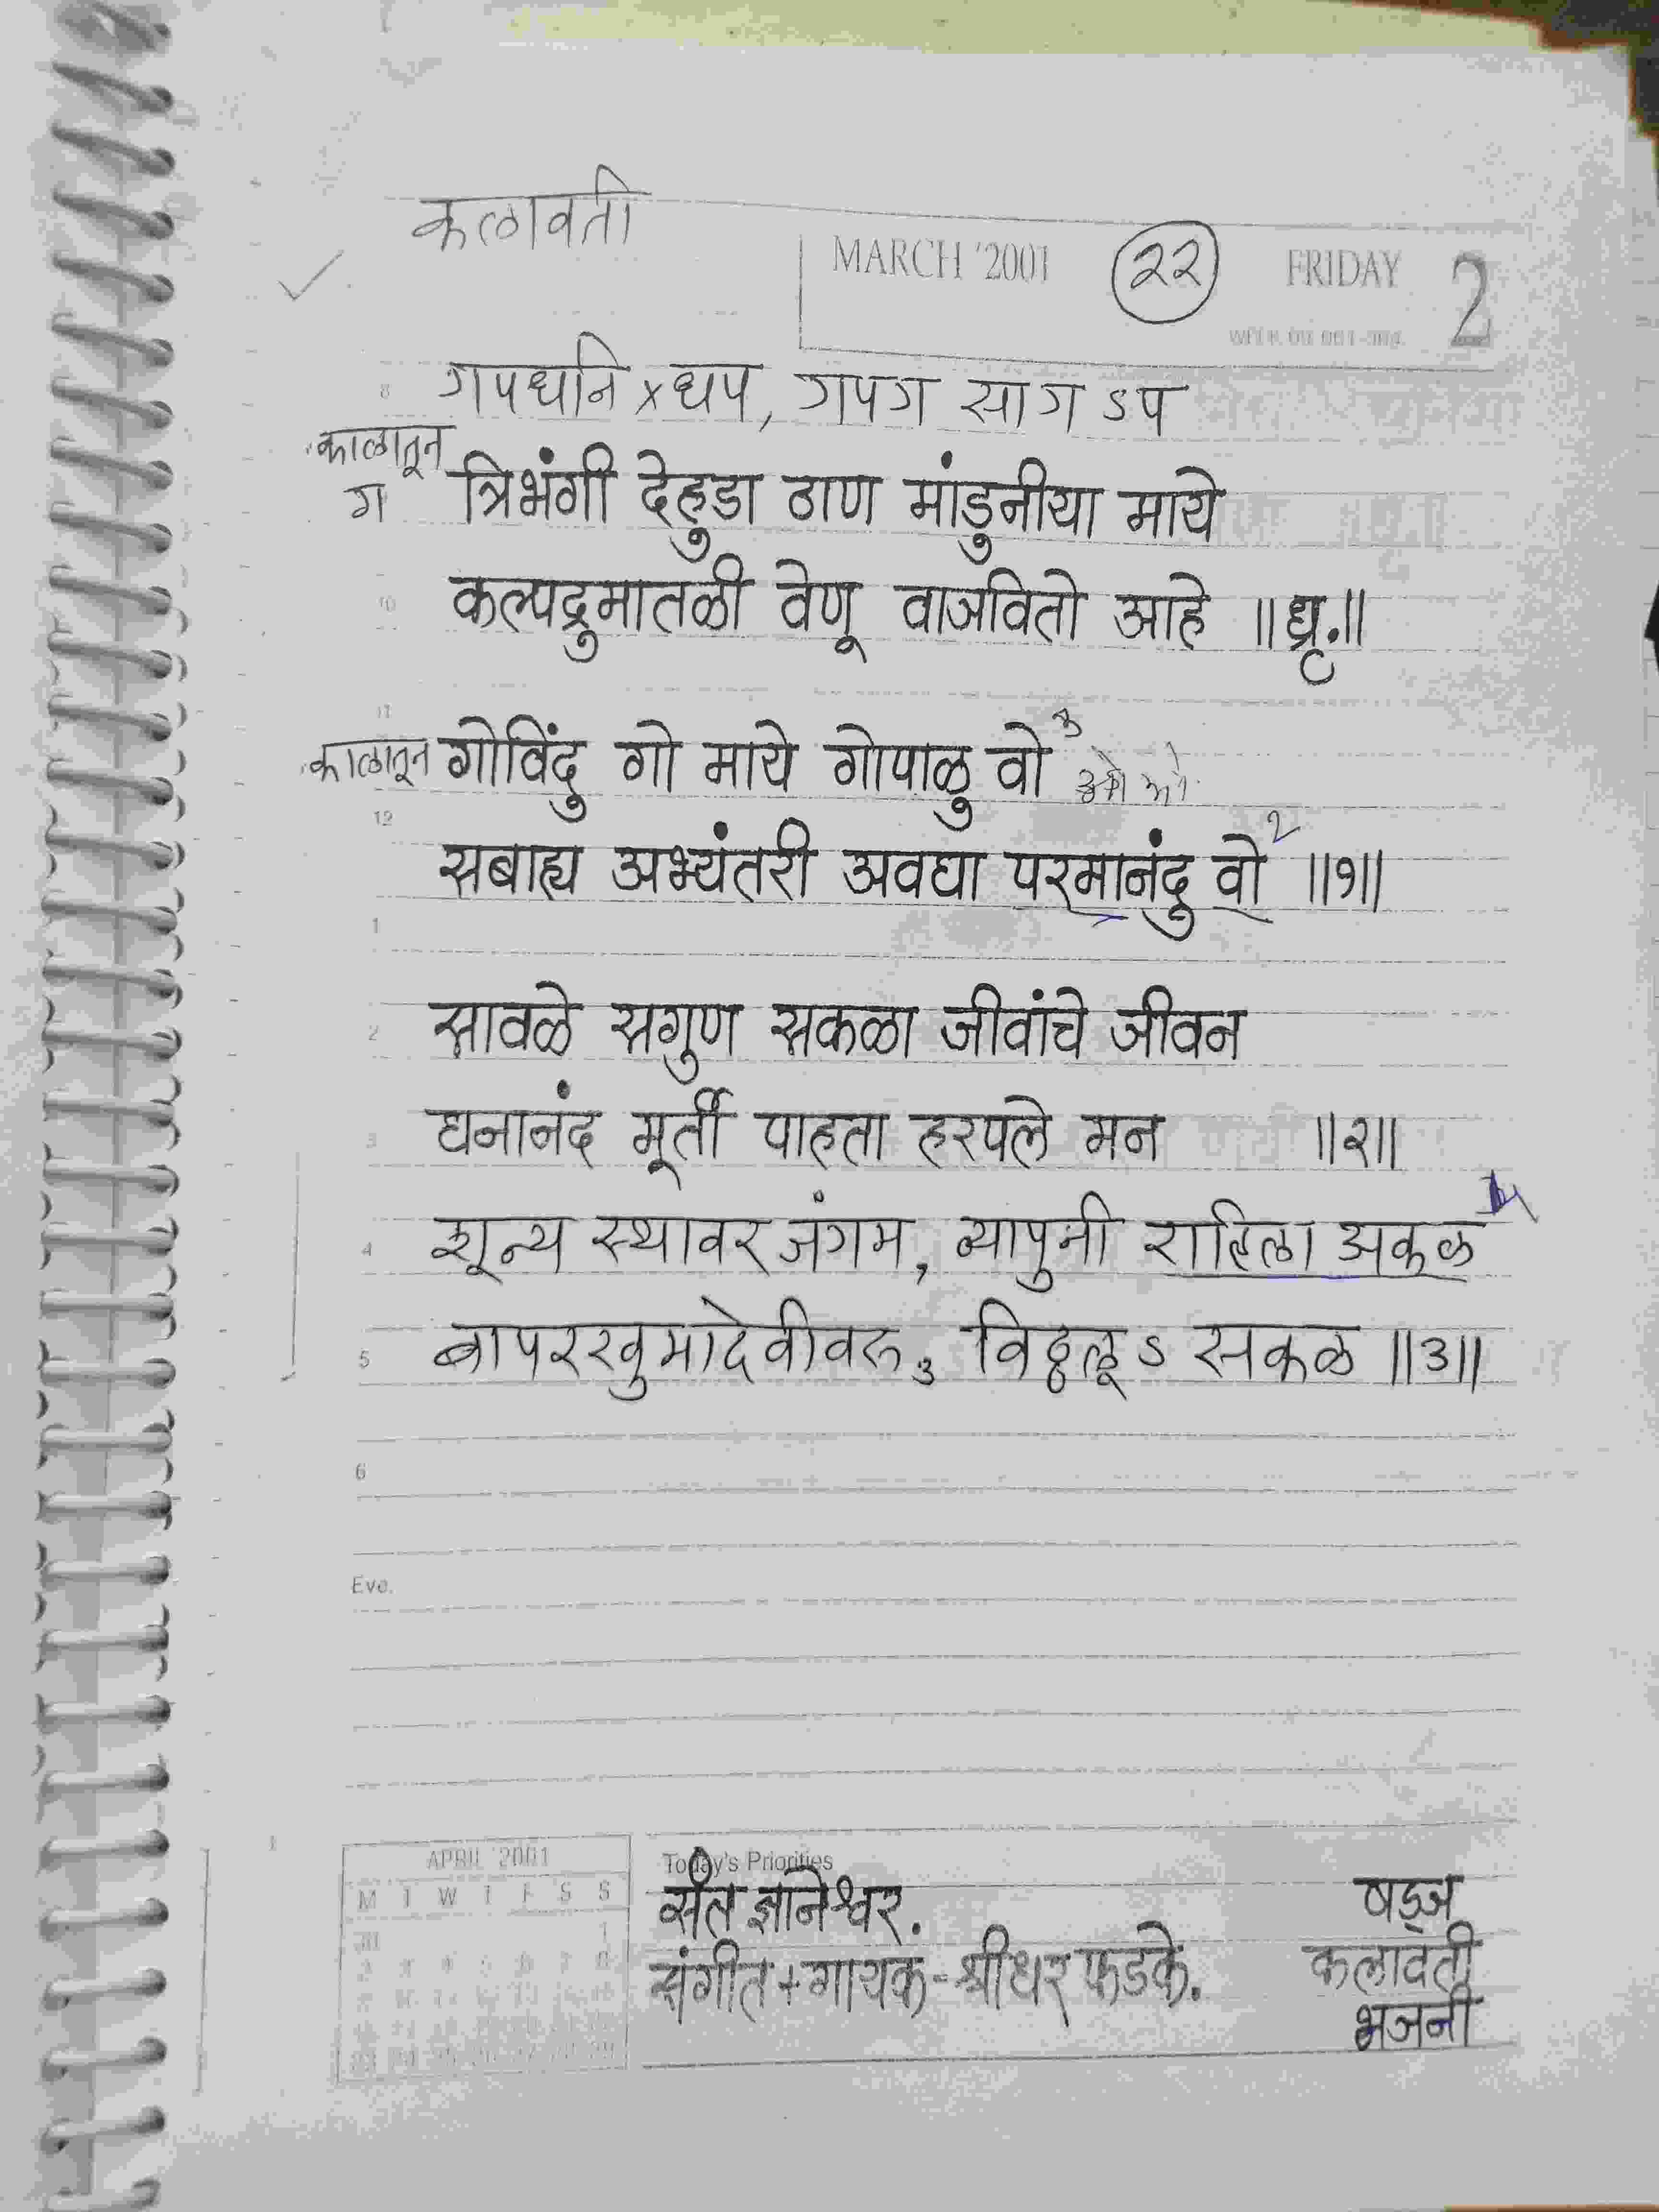 कलावती
MARCH '2001 २२ FRIDAY 2
८ गपधनि x धप, गपग साग ऽप
काळातून
ग त्रिभंगी देहुडा ठाण मांडुनीया माये
10 कल्पद्रुमातळी वेणू वाजवितो आहे ॥ध्रृ.॥
11
काळातून गोविंदु गो माये गोपाळु वो ३
12
सबाह्य अभ्यंतरी अवघा परमानंदु वो २ ॥१॥
1
2 सावळे सगुण सकळा जीवांचे जीवन
3 घनानंद मूर्ती पाहता हरपले मन ॥२॥
4 शून्य स्थावर जंगम, व्यापुनी राहिला अकळ
5 बापरखुमादेवीवरु, विठ्ठलू ऽ सकळ ॥३॥
6
Eve.
APRIL 2001
M T W T F S S
Today's Priorities
संत ज्ञानेश्वर.
संगीत + गायक - श्रीधर फडके.
षड्ज
कलावती
भजनी